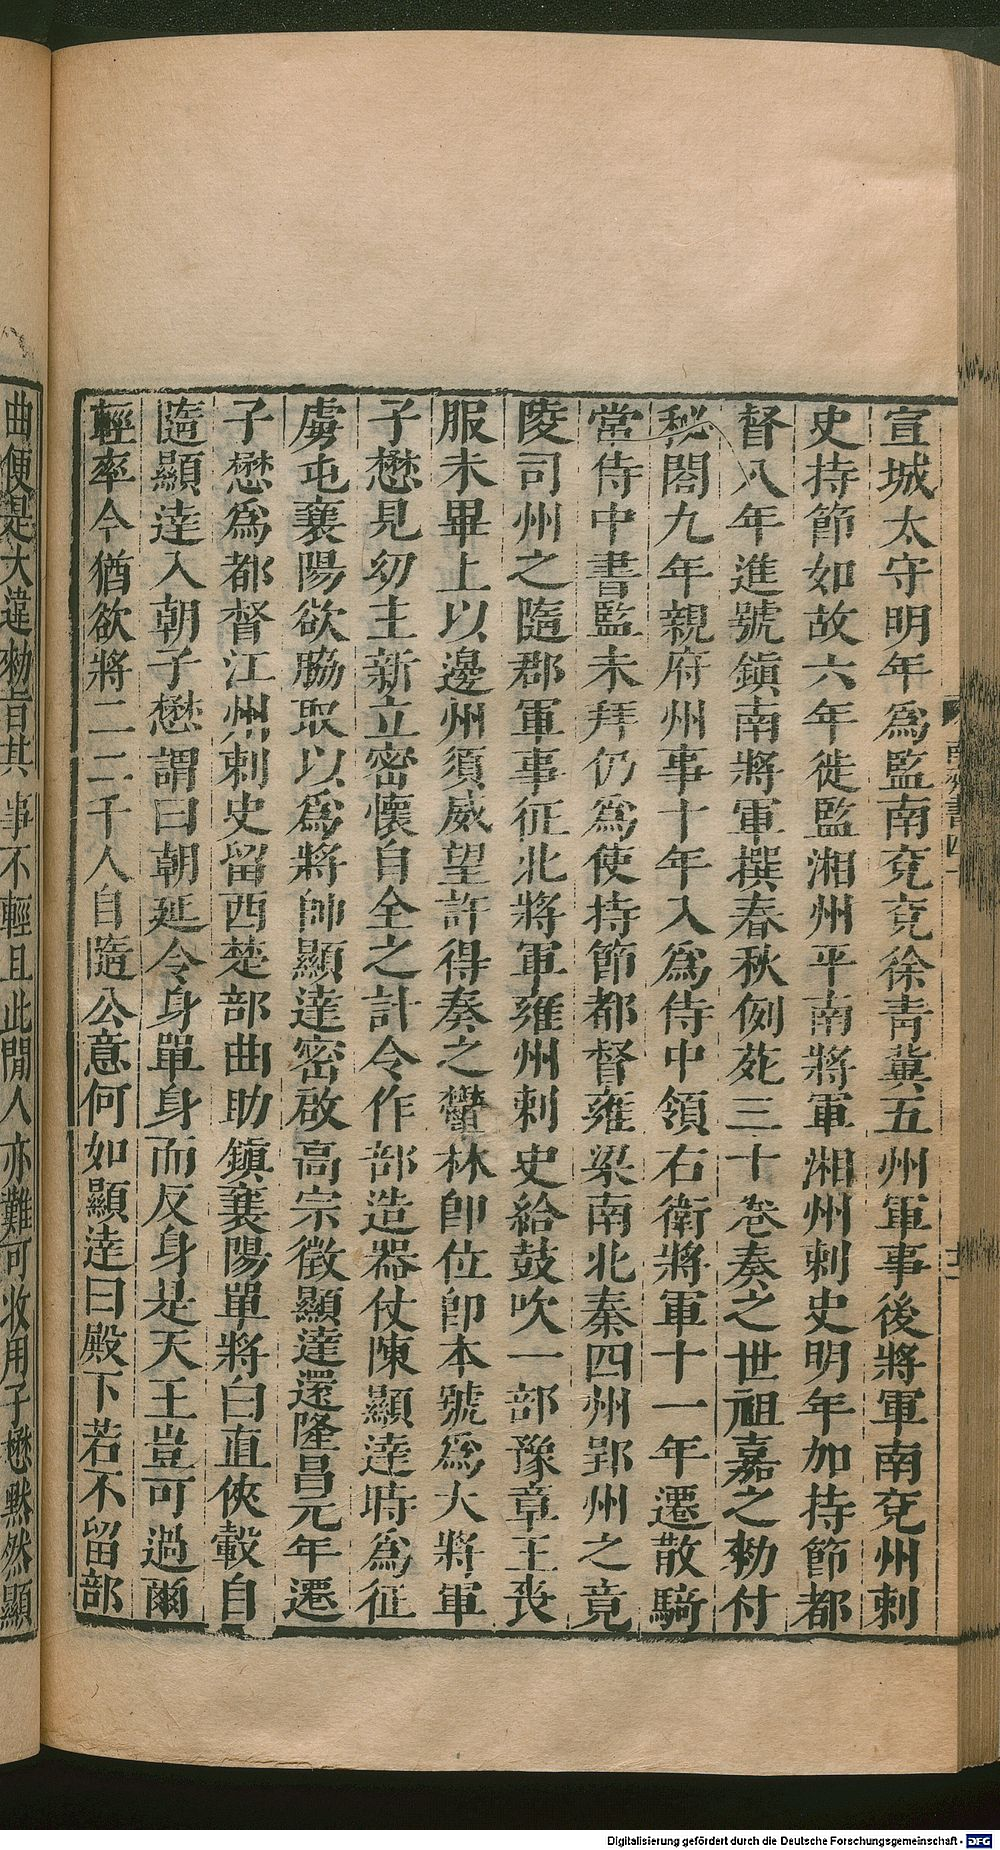 宣城太守明年爲監南兗兗徐青冀五州軍事後將軍南兗州刺
史持節如故六年徙監湘州平南將軍湘州刺史明年加持節都
督八年進號鎭南將軍撰春秋例苑三十卷奏之世祖嘉之勑付
秘閣九年親府州事十年入爲侍中領右衛將軍十一年遷散騎
常侍中書監未拜仍爲使持節都督雍梁南北秦四州郢州之竟
陵司州之隨郡軍事征北將軍雍州刺史給鼓吹一部豫章王喪
服未畢上以邊州須威望許得奏之鬱林卽位卽本號爲大將軍
子懋見幼主新立密懷自全之計令作部造器仗陳顯達時爲征
虜屯襄陽欲脇取以爲將帥顯達密啟高宗徵顯達還隆昌元年遷
子懋爲都督江州刺史留西楚部曲助鎭襄陽單將白直俠轂自
隨顯達入朝子懋謂曰朝廷令身單身而反身是天王豈可過爾
輕率今猶欲將二三千人自隨公意何如顯達曰殿下若不留部
曲便是大違勑旨其事不輕且此閒人亦難可收用子懋黙然顯
Digitalisierung gefördert durch die Deutsche Forschungsgemeinschaft - DFG